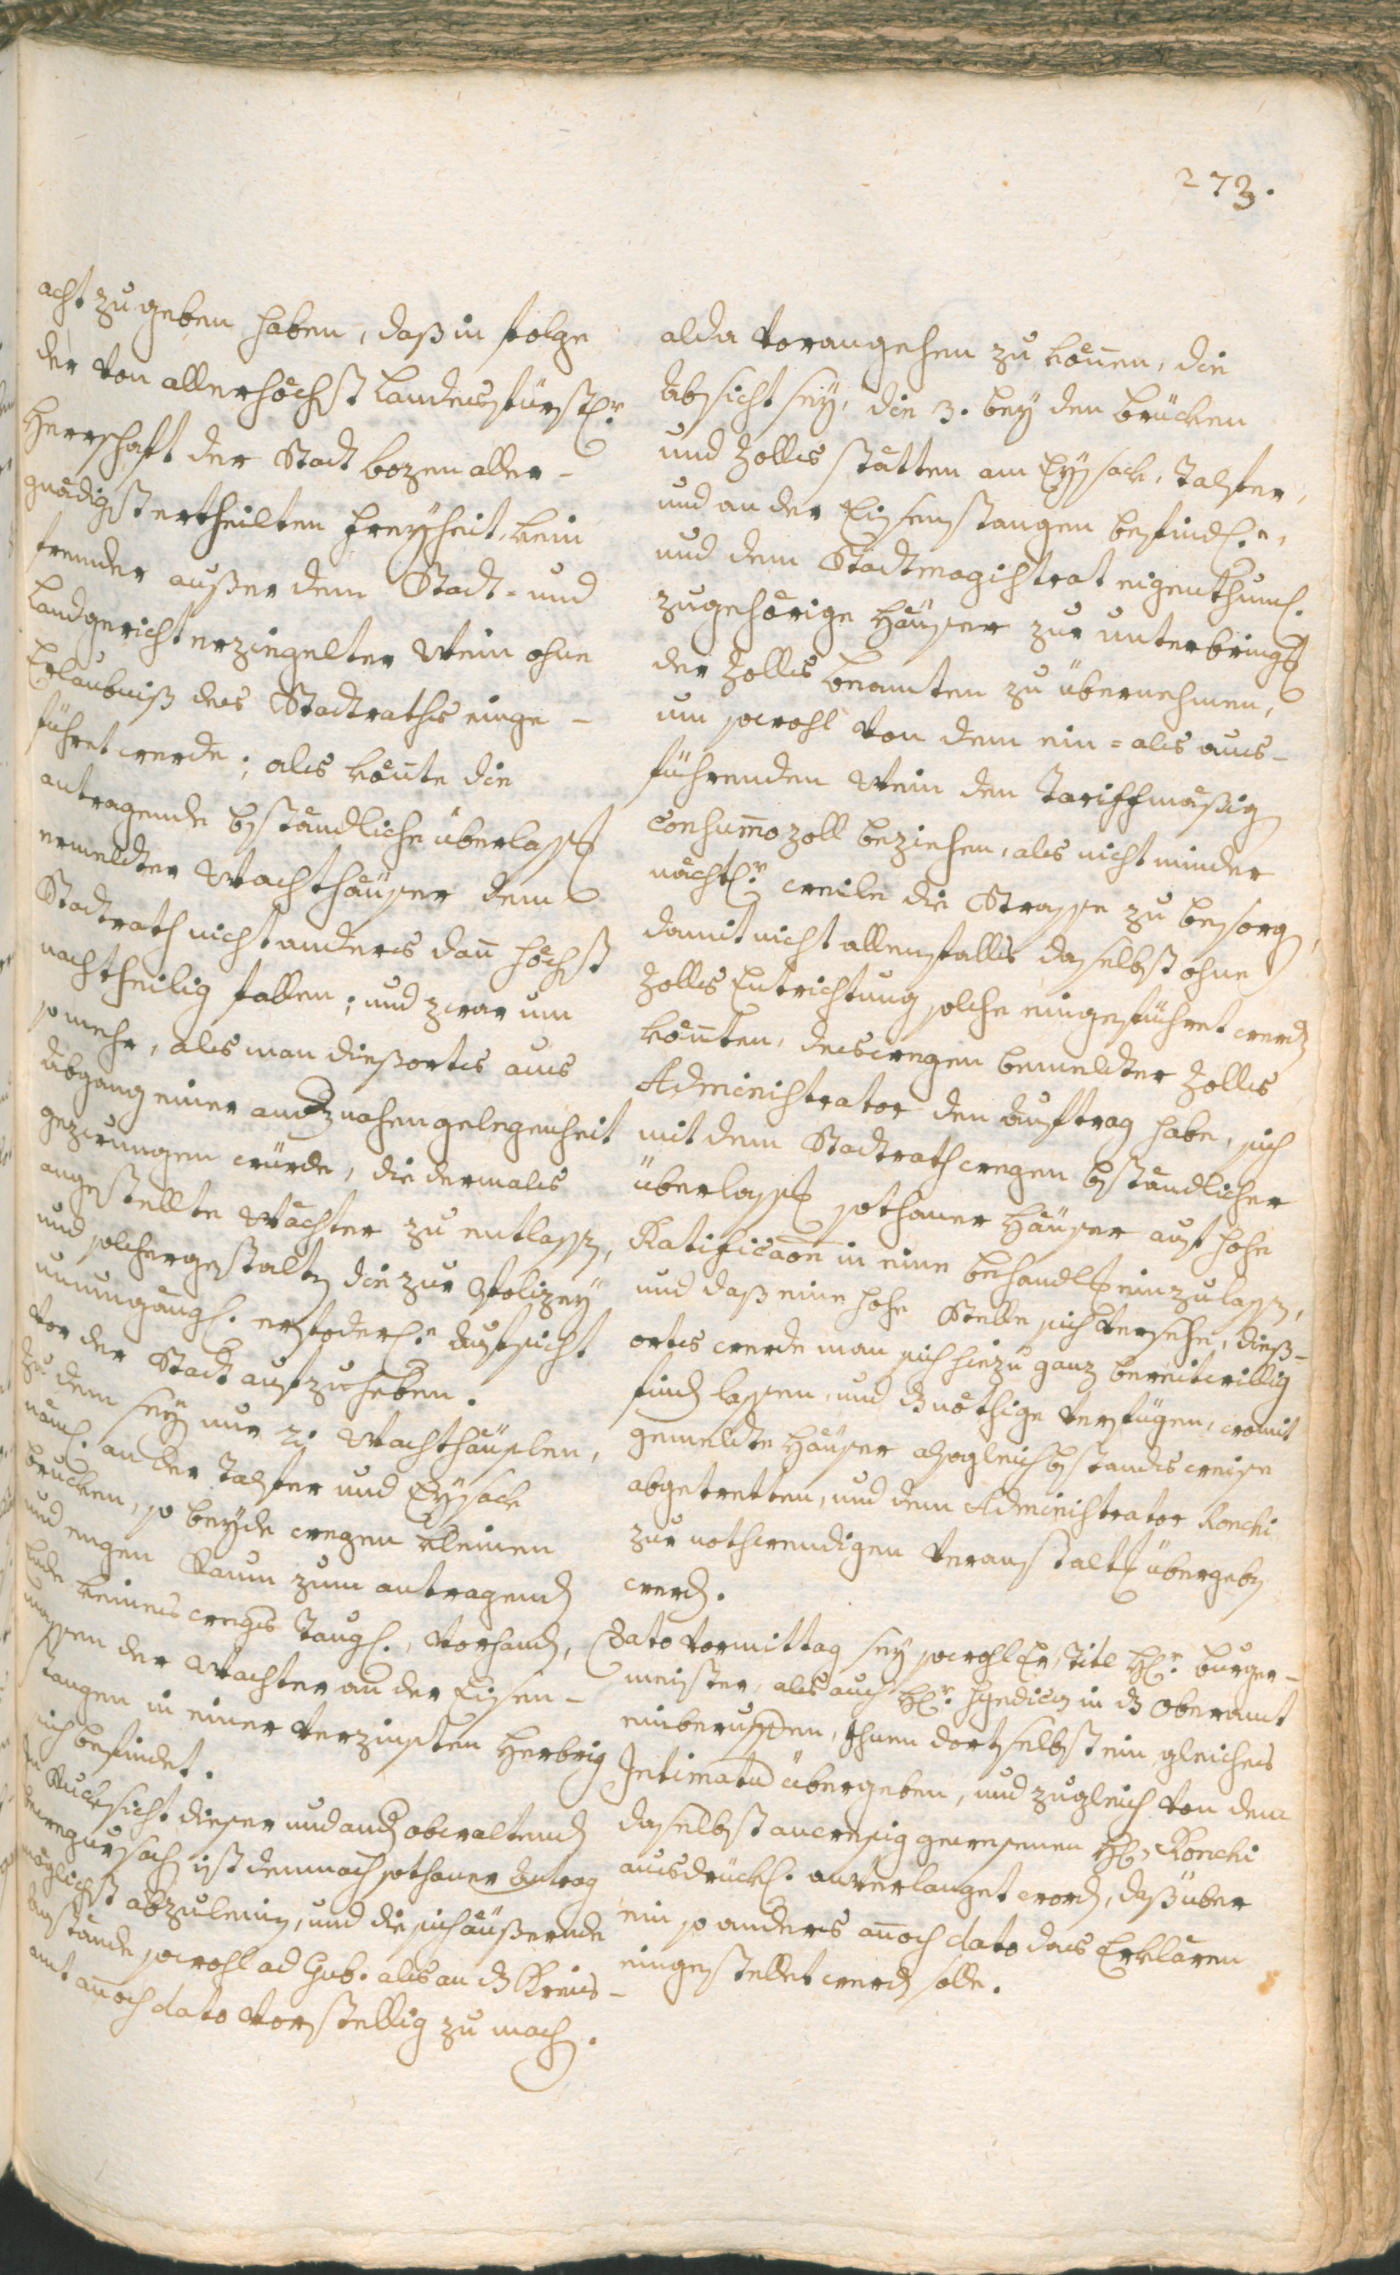 273.
acht zu geben haben, daß in folge
der von allerhöchst Landesfürstl:r
Herrschaft der Stadt Bozen aller-
gnädigst ertheilten Freyheit, kein
fremder außer dem Stadt- und
Landgericht erziegelter Wein ohne
Erlaubniß des Stadtraths einge-
führet werde; als könnte die
antragende bständliche überlass
ermeldter Wachthäuser dem
Stadtrath nicht anders dan höchst
nachtheilig fallen; und zwar um
so mehr, als man dießorts aus
Abgang einer and nahen gelegenheit
gezwungen würde, die dermals
angestellte Wächter zu entlassen,
und solchergestalten die zur Polizey
unumgängl. erfoderl:n Aufsicht
vor der Stadt aufzuheben.
Zu dem seyn nur 2: Wachthäuslen,
näml. an der Talfer und Eysack
brucken, so beyde wegen kleinen
und engen Raum zum antragenden
Ende keines wegs taugl., vorhanden,
massen der Wachter an der Eisen-
stangen in einer verzinsten Herbrig
sich befindet.
In Rucksicht dieser und anderen obwaltenden
bewegursachen ist demnach sothaner Antrag
möglichst abzuleinen, und die sich äußernde
Anstände sowohl ad Gub. als an d Kreis-
amt annoch dato vorstellig zu machen.
alda vorangehen zu können, die
Absicht sey, die 3. bey den brücken
und Zolls stätten am Eysack, Talfer,
und an der Eisenstangen befindl:n,
und dem Stadtmagistrat eigenthuml.
zugehörige Häuser zur unterbringung
der Zolls beamten zu übernehmen,
um sowohl von dem ein- als aus-
führenden Wein den Tariffmäßigen
Consummo zoll beziehen, als nicht minder
nächtl:r weile die Strasse zu besorgen,
damit nicht allenfalls daselbst ohne
Zolls Entrichtung solche eingeführet werden
könnten, deswegen bemeldter Zolls
Administrator den Auftrag habe, sich
mit dem Stadtrath wegen bständlicher
überlassung sothaner Häuser auf hohe
Ratificaōn in eine behandlung einzulassen,
und daß eine hohe Stelle sich versehe, dieß-
orts werde man sich hiezu ganz bereitwillig
finden lassen, und d nöthige verfügen, womit
gemeldte Häuser alsogleich bstands weise
abgetretten, und dem Administrator Ronchi
zur nothwendigen Veranstaltung übergeben
werden.
Dato vormittag sey sowohl Er, Titl H:r Burger-
meister, als auch H:r Syndicus in d Oberamt
einberuffen, ihnen dortselbst ein gleiches
Intimatum übergeben, und zugleich von dem
daselbst anwesig gewesenen H: Ronchi
ausdrückl. anverlanget worden, daß über
ein so anders annoch dato das Erklären
eingestellet werden solle.